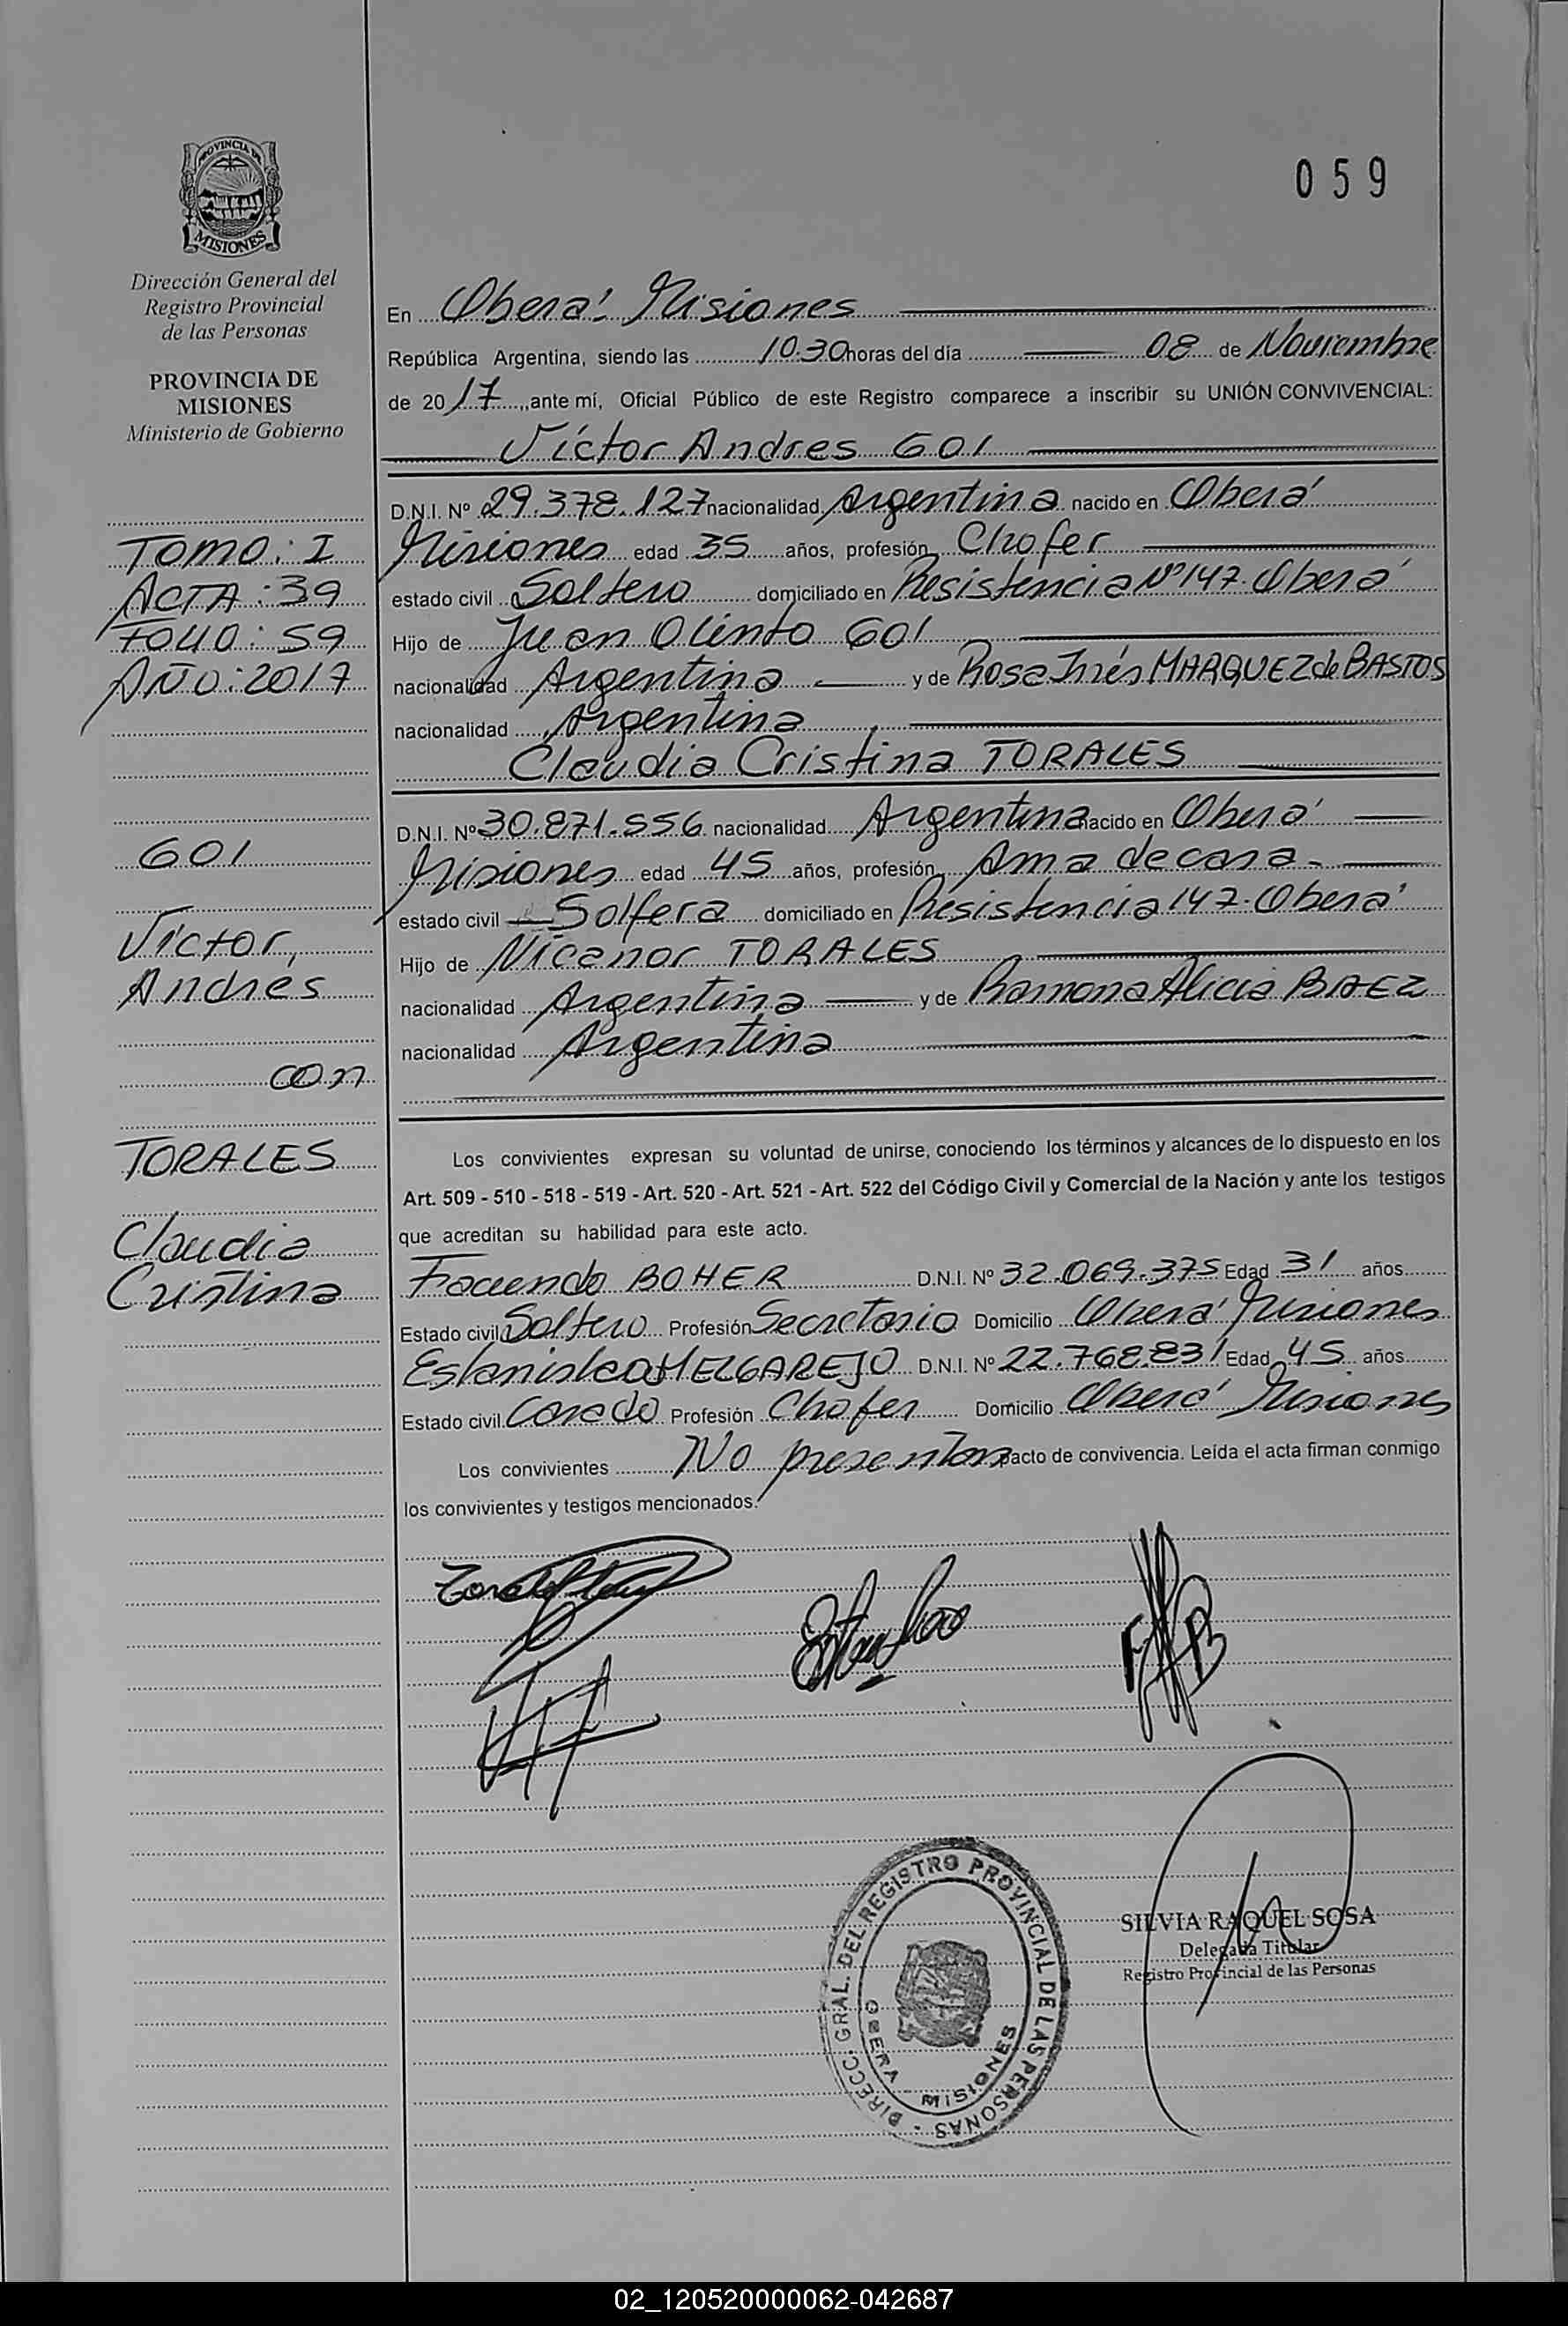 059
PROVINCIA DE
MISIONES
Dirección General del
Registro Provincial
de las Personas
PROVINCIA DE
MISIONES
Ministerio de Gobierno
TOMO: I
ACTA: 39
FOLIO: 59
AÑO: 2017
GOI
Víctor,
Andrés
con
TORALES
Claudia
Cristina
En Oberá. Misiones
República Argentina, siendo las 10.30 horas del día 08 de Noviembre
de 2017, ante mí, Oficial Público de este Registro comparece a inscribir su UNIÓN CONVIVENCIAL:
Víctor Andres GOI
D.N.I. Nº 29.378.127 nacionalidad Argentina nacido en Oberá
Misiones edad 35 años, profesión Chofer
estado civil Soltero domiciliado en Resistencia Nº 147. Oberá
Hijo de Juan Olinto GOI
nacionalidad Argentina y de Rosa Inés MARQUEZ de BASTOS
nacionalidad Argentina
Claudia Cristina TORALES
D.N.I. Nº 30.871.556 nacionalidad Argentina nacido en Oberá
Misiones edad 45 años, profesión Ama de casa
estado civil Soltera domiciliado en Resistencia 147. Oberá
Hijo de Nicanor TORALES
nacionalidad Argentina y de Ramona Alicia BAEZ
nacionalidad Argentina
Los convivientes expresan su voluntad de unirse, conociendo los términos y alcances de lo dispuesto en los
Art. 509 - 510 - 518 - 519 - Art. 520 - Art. 521 - Art. 522 del Código Civil y Comercial de la Nación y ante los testigos
que acreditan su habilidad para este acto.
Facundo BOHER D.N.I. Nº 32.069.375 Edad 31 años
Estado civil Soltero Profesión Secretario Domicilio Oberá Misiones
Estanislao MELGAREJO D.N.I. Nº 22.768.831 Edad 45 años
Estado civil Casado Profesión Chofer Domicilio Oberá Misiones
Los convivientes No presentan pacto de convivencia. Leída el acta firman conmigo
los convivientes y testigos mencionados.
DIRECC. GRAL. DEL REGISTRO PROVINCIAL DE LAS PERSONAS -
OBERA MISIONES
SILVIA RAQUEL SOSA
Delegada Titular
Registro Provincial de las Personas
02_120520000062-042687